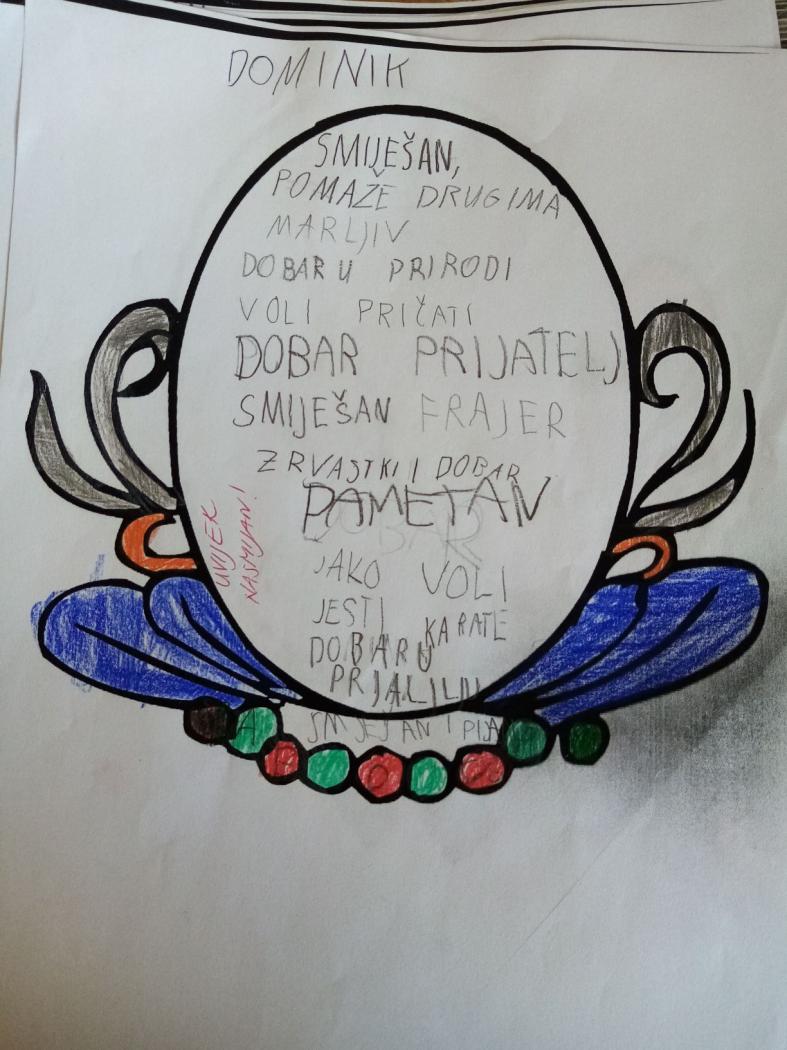 DOMINIK
SMIJEŠAN,
POMAŽE DRUGIMA
MARLJIV
DOBAR U PRIRODI
VOLI PRIČATI
DOBAR PRIJATELJ
SMIJEŠAN FRAJER
ZRVASTKI I DOBAR
PAMETAN
DOBAR
JAKO VOLI
JESTI KARATE
DOBAR U
SMJEŠAN I
UVIJEK
NASMIJAN!